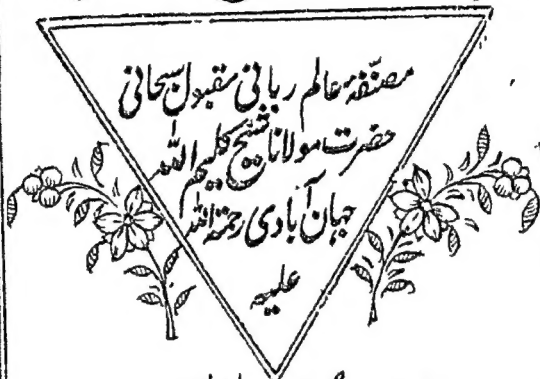 مصنّفۂ عالم ربانی مقبول سبحانی
حضرت مولانا شیخ کلیم اللہ
جہان آبادی رحمۃ اللہ
علیہ